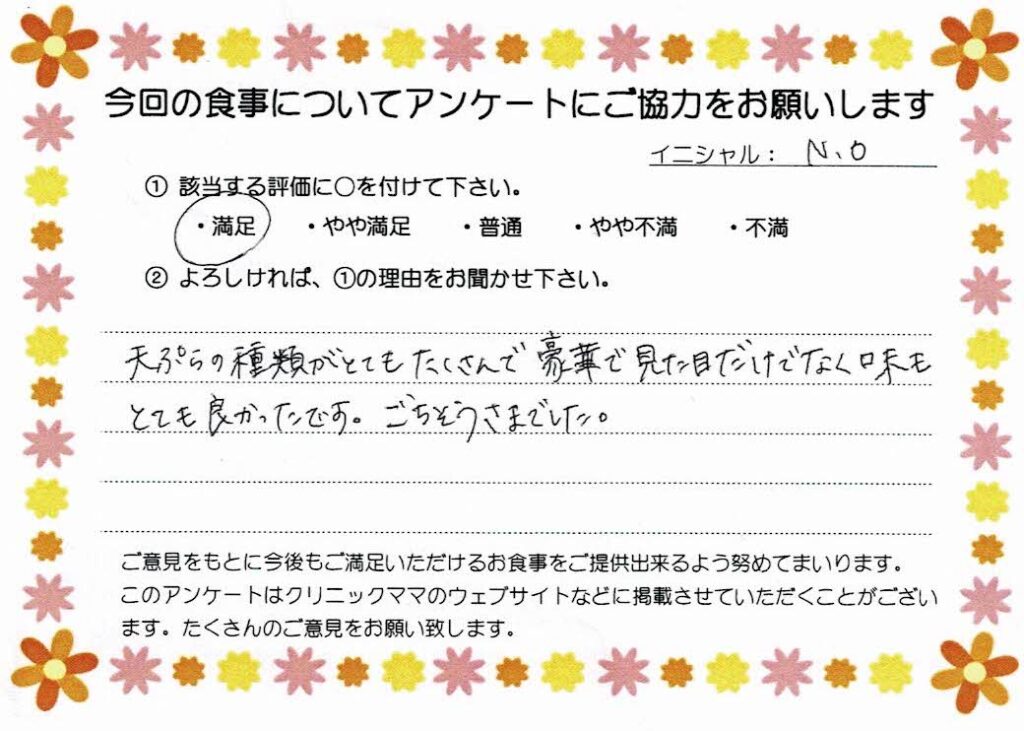 今回の食事についてアンケートにご協力をお願いします
イニシャル： N.O
① 該当する評価に○を付けて下さい。
・満足 ・やや満足 ・普通 ・やや不満 ・不満
② よろしければ、①の理由をお聞かせ下さい。
天ぷらの種類がとてもたくさんで豪華で見た目だけでなく味も
とても良かったです。ごちそうさまでした。
ご意見をもとに今後もご満足いただけるお食事をご提供出来るよう努めてまいります。
このアンケートはクリニックママのウェブサイトなどに掲載させていただくことがござい
ます。たくさんのご意見をお願い致します。